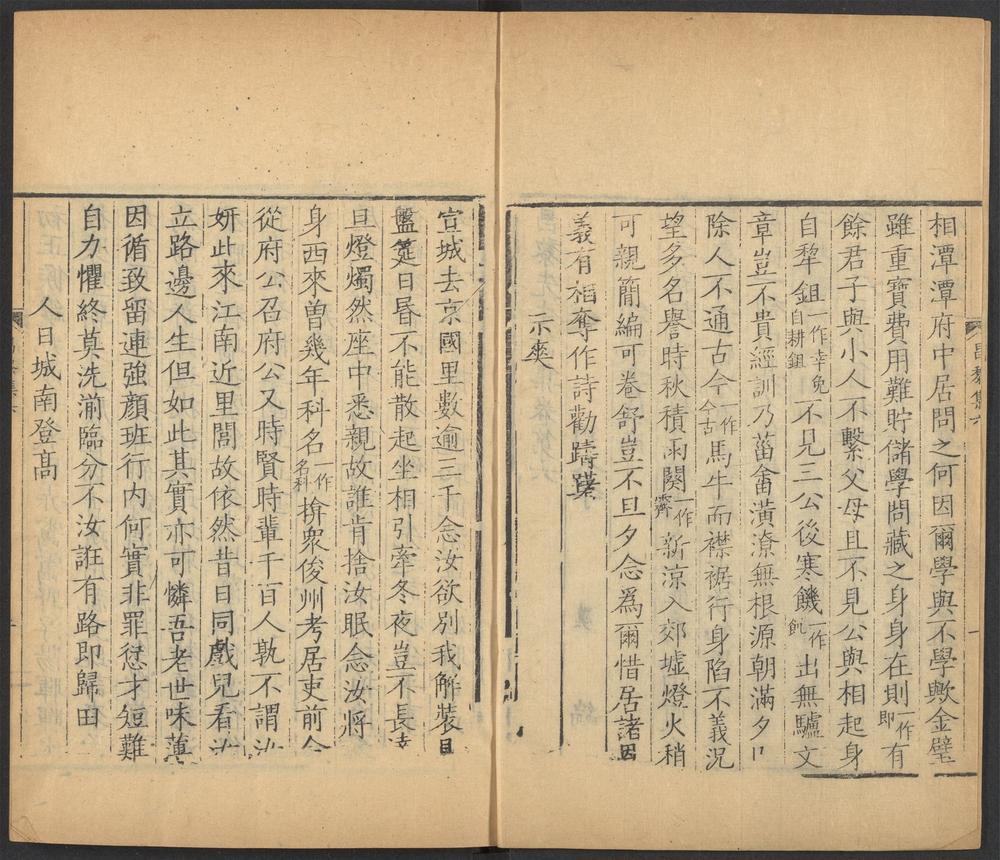 相潭潭府中居問之何因爾學與不學歟金璧
雖重寶費用難貯儲學問藏之身身在則一作即有
餘君子與小人不繫父母且不見公與相起身
自犂鉏一作幸免自耕鉏不見三公後寒饑一作飢出無驢文
章豈不貴經訓乃菑畬潢潦無根源朝滿夕
除人不通古今一作今古馬牛而襟裾行身陷不義況
望多名譽時秋積雨闋一作霽新涼入郊墟燈火稍
可親簡編可卷舒豈不旦夕念為爾惜居諸因
義有相奪作詩勸躊躇
示爽
宣城去京國里數逾三千念汝欲別我解裝具
盤筵日昏不能散起坐相引牽冬夜豈不長
旦燈燭然座中悉親故誰肯捨汝眠念汝將
身西來曾幾年科名一作名科揜衆俊州考居吏前今
從府公召府公又時賢時輩千百人孰不謂汝
妍此來江南近里閭故依然昔日同戲兒看汝
立路邊人生但如此其實亦可憐吾老世味薄
因循致留連強顔班行内何實非罪愆才短難
自力懼終莫洗湔臨分不汝誑有路即歸田
人日城南登高
昌黎集六